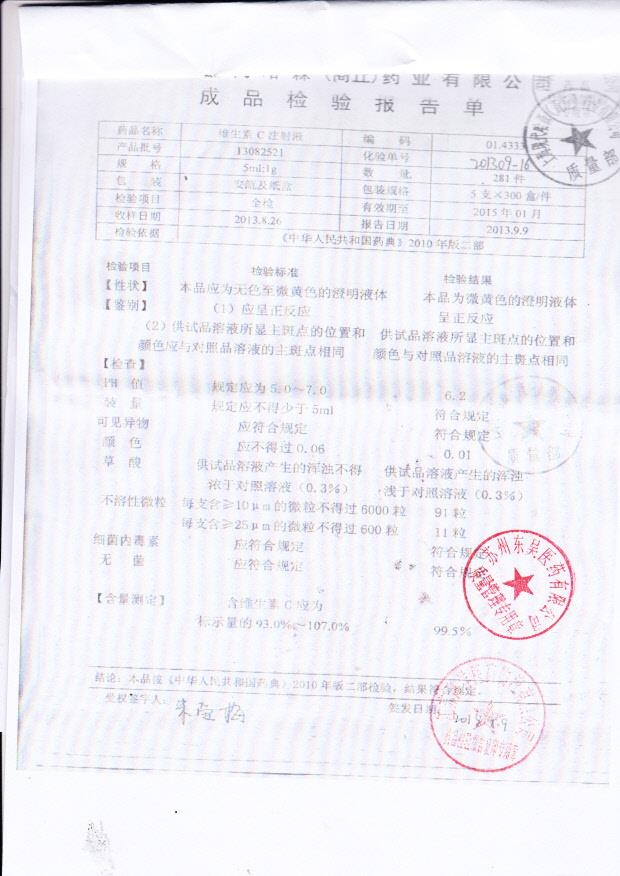 (商丘)药业有限公司
成品检验报告单
药品名称 维生素C注射液 编 码 01.4333
产品批号 13082521 化验单号 201309-16
规 格 5ml:1g 数 量 281件
包 装 安瓿及纸盒 包装规格 5支×300盒/件
检验项目 全检 有效期至 2015年01月
收样日期 2013.8.26 报告日期 2013.9.9
检验依据 《中华人民共和国药典》2010年版二部
检验项目 检验标准 检验结果
【性状】 本品应为无色至微黄色的澄明液体 本品为微黄色的澄明液体
【鉴别】 (1)应呈正反应 呈正反应
(2)供试品溶液所显主斑点的位置和 供试品溶液所显主斑点的位置和
颜色应与对照品溶液的主斑点相同 颜色与对照品溶液的主斑点相同
【检查】
PH 值 规定应为5.0~7.0 6.2
装 量 规定应不得少于5ml 符合规定
可见异物 应符合规定 符合规定
颜 色 应不得过0.06 0.01
草 酸 供试品溶液产生的浑浊不得 供试品溶液产生的浑浊
浓于对照溶液(0.3%) 浅于对照溶液(0.3%)
不溶性微粒 每支含≥10μm的微粒不得过6000粒 91粒
每支含≥25μm的微粒不得过600粒 11粒
细菌内毒素 应符合规定 符合规定
无 菌 应符合规定 符合规
【含量测定】 含维生素C应为
标示量的93.0%~107.0% 99.5%
苏州东吴医药有限公司
质量管理专用章
结论:本品按《中华人民共和国药典》2010年版二部检验,结果符合规定.
受权签字人: 签发日期:
质量部